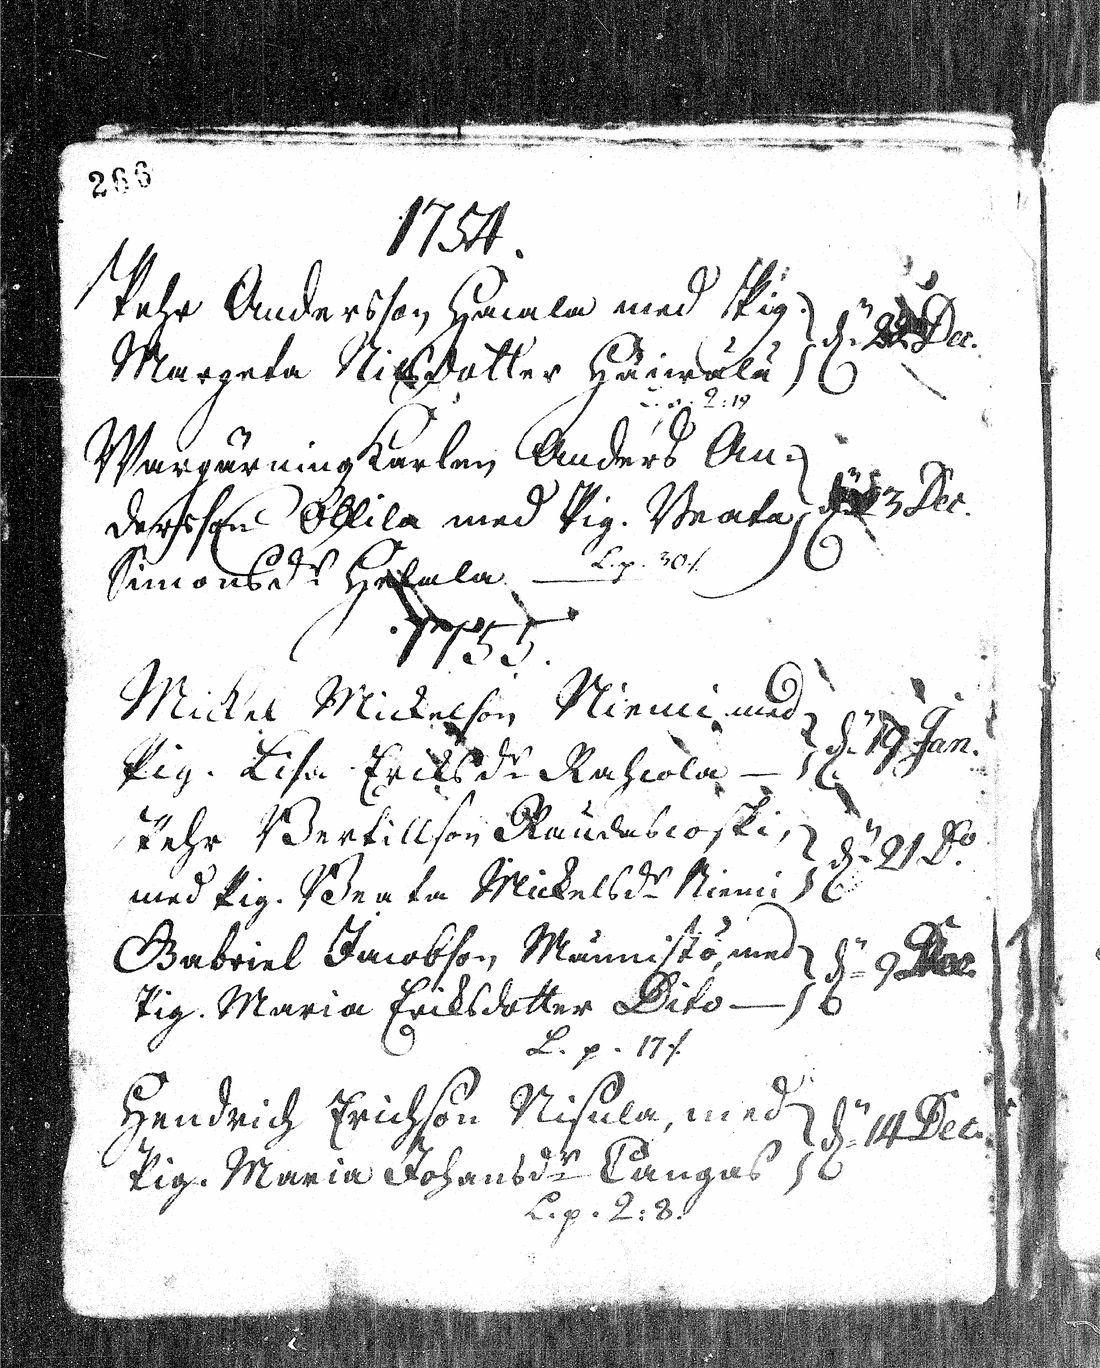 266
1754.
Pehr Andersson Haiala med Pig.
Margeta Nilsdotter Häiwälä
d: 22 Dec.
L. p. 2:19
Wargärning Karlen Anders An-
dersson Ollila med Pig. Beata
Simonsdr Hetala
3 Dec.
L. p. 30
1755.
Mickel Mickelson Niemi med
Pig. Lisa Ericksdr Rahiola
d: 19 Jan.
Pehr Bertillson Raudascoski,
med Pig. Beata Mickelsdr Niemi
d: 21 Do
Gabriel Jacobson Männistö, med
Pig. Maria Ericksdotter Dito
d: 9
L. p. 17
Hendrich Erichson Nisula, med
Pig. Maria Johansdr Cangas
d: 14 Dec.
L. p. 2:8.